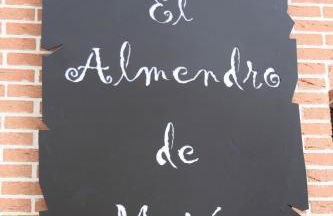 El
Almendro
de